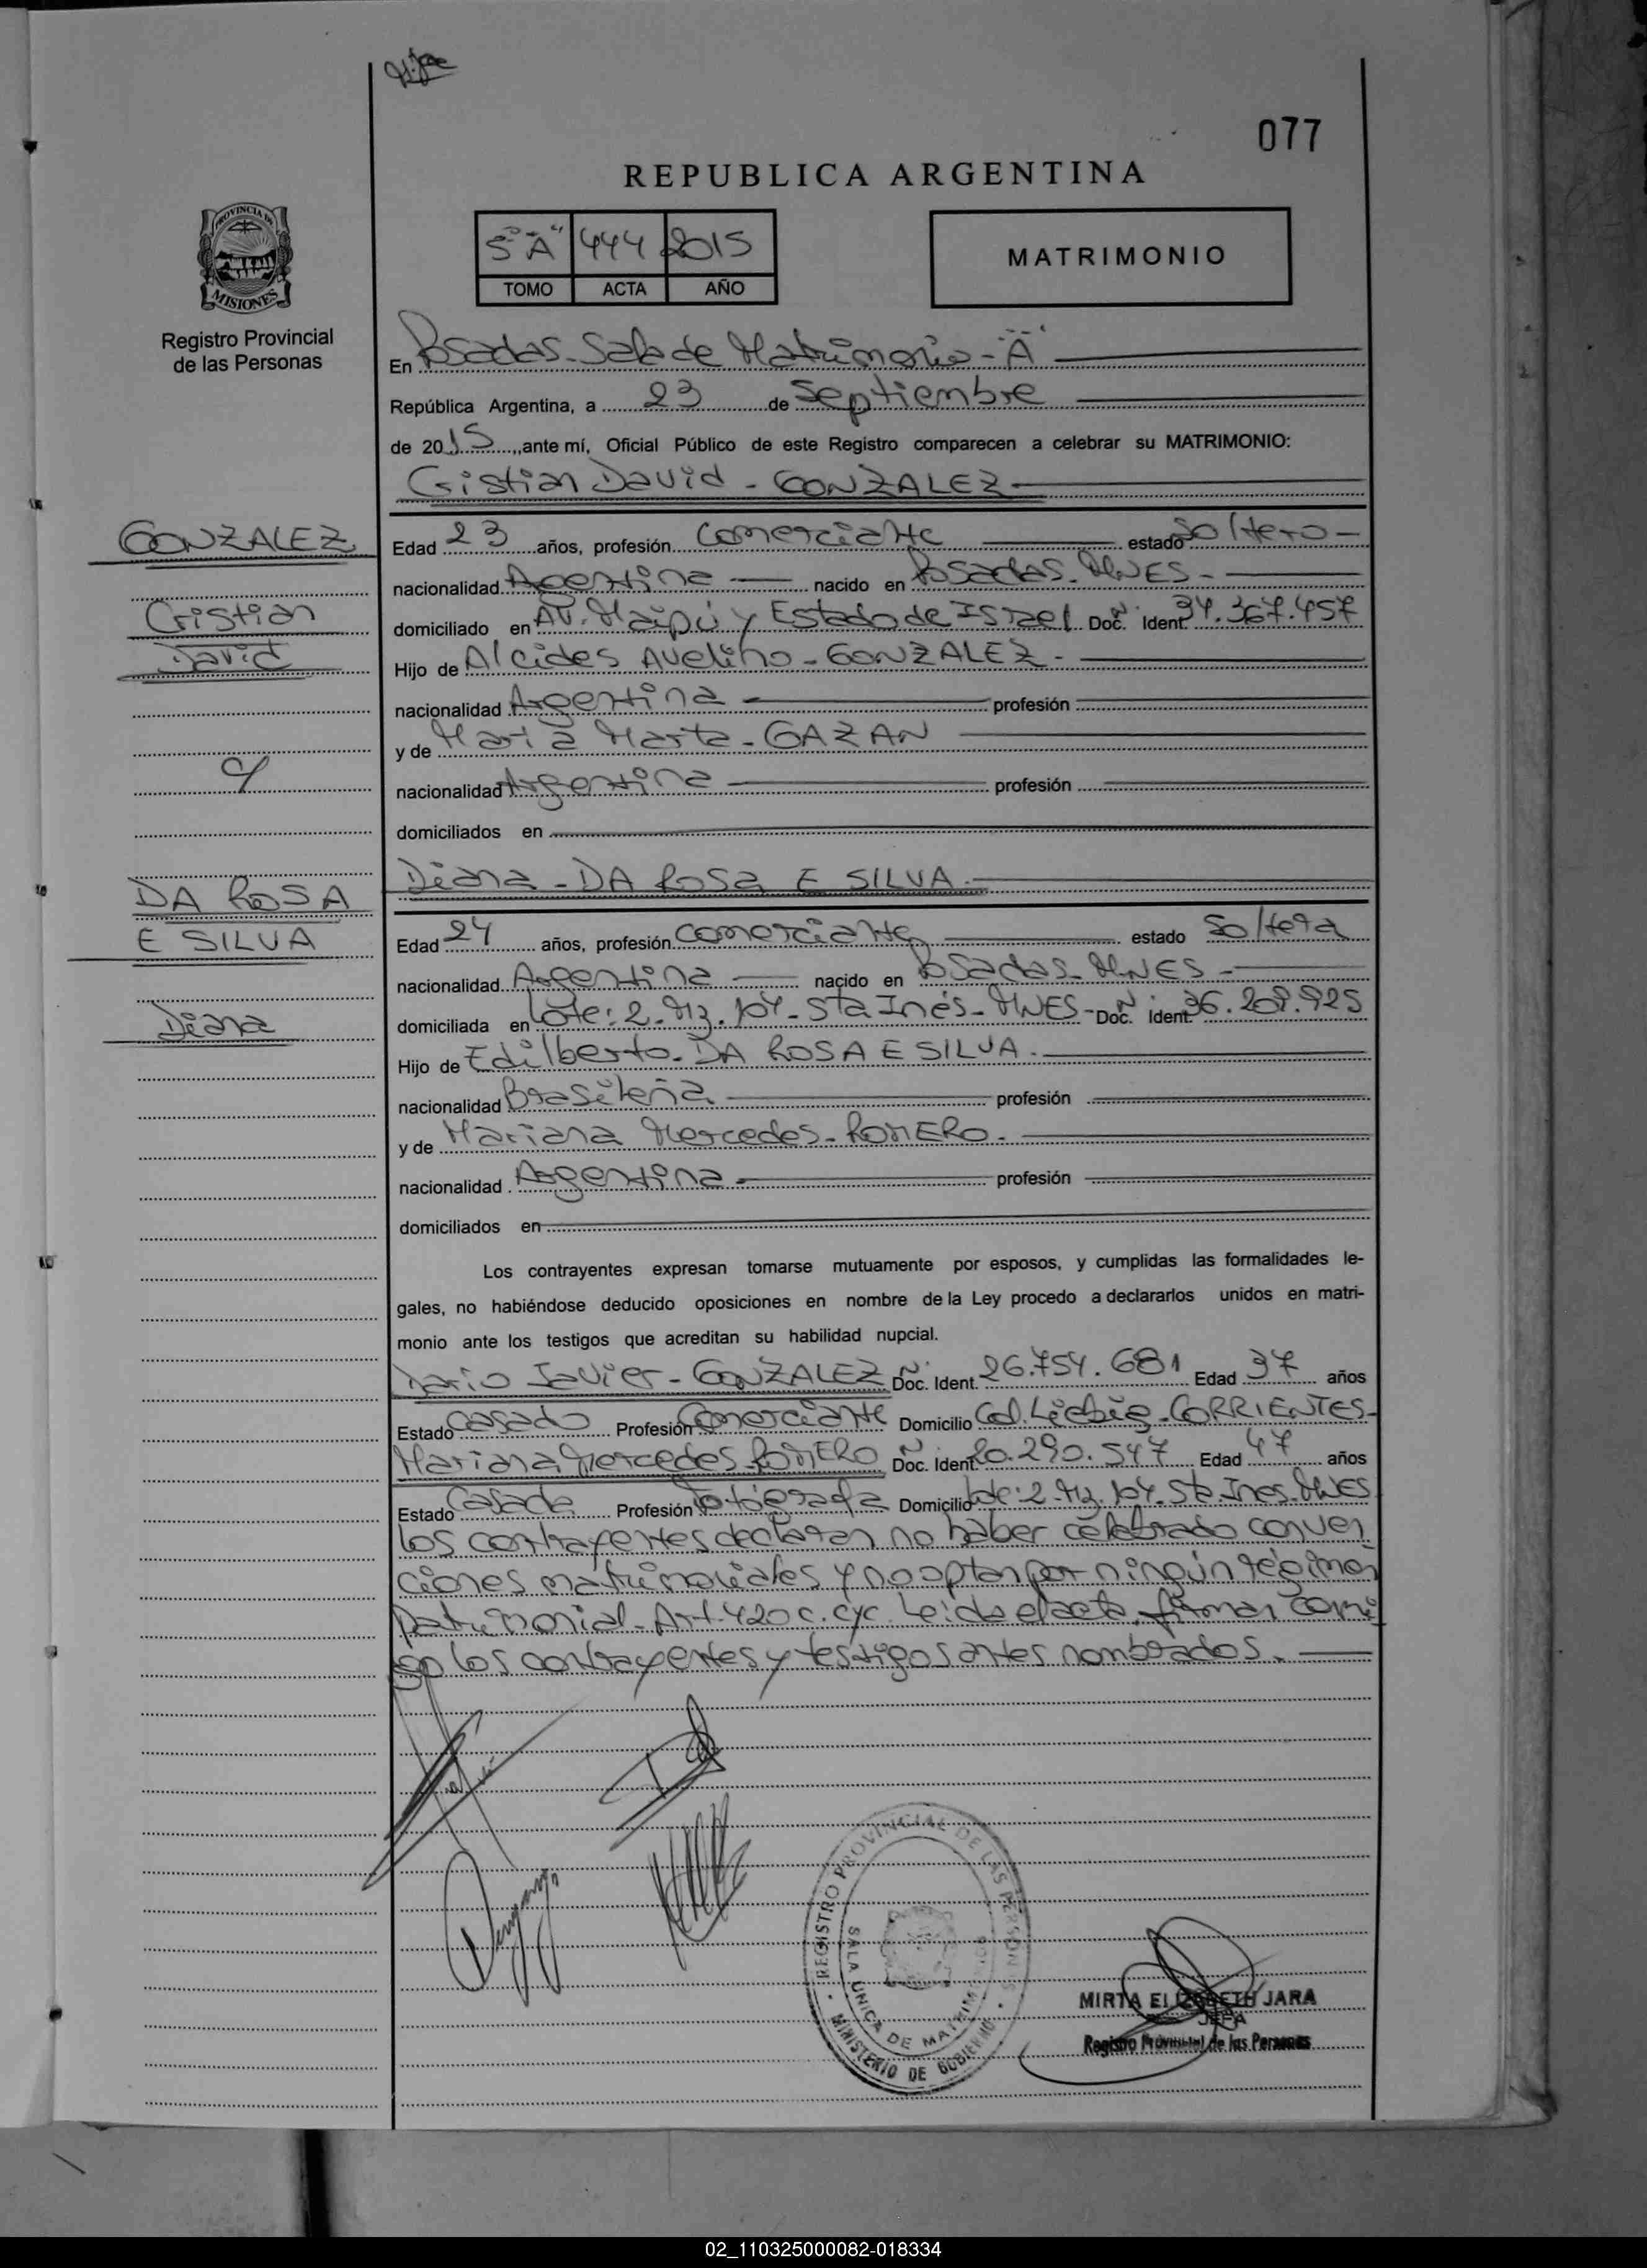 077
REPUBLICA ARGENTINA
PROVINCIA DE
MISIONES
Registro Provincial
de las Personas
5° "A" 444 2015
TOMO ACTA AÑO
MATRIMONIO
En Posadas - Sala de Matrimonio - "A"
República Argentina, a 23 de Septiembre
de 2015, ante mí, Oficial Público de este Registro comparecen a celebrar su MATRIMONIO:
Cristian David - GONZALEZ
GONZALEZ
Cristian
David
Edad 23 años, profesión Comerciante estado Soltero -
nacionalidad Argentina nacido en Posadas - MNES -
domiciliado en AV. Maipú y Estado de Israel Doc. Ident. N: 34.367.457
Hijo de Alcides Avelino - GONZALEZ -
nacionalidad Argentina - profesión
y de María Marta - GAZAN
nacionalidad Argentina - profesión
domiciliados en
c/
DA ROSA
E SILVA
Diana
Diana - DA ROSA E SILVA.
Edad 24 años, profesión Comerciante estado Soltera
nacionalidad Argentina nacido en Posadas - MNES -
domiciliada en Lote: 2 - Mz. 104 - Sta Inés - MNES - Doc. Ident. N: 36.209.925
Hijo de Edilberto - DA ROSA E SILVA.
nacionalidad Brasileña profesión
y de Mariana Mercedes - ROMERO.
nacionalidad Argentina - profesión
domiciliados en
Los contrayentes expresan tomarse mutuamente por esposos, y cumplidas las formalidades le-
gales, no habiéndose deducido oposiciones en nombre de la Ley procedo a declararlos unidos en matri-
monio ante los testigos que acreditan su habilidad nupcial.
Dario Javier - GONZALEZ Doc. Ident. N: 26.754.681 Edad 37 años
Estado Casado Profesión Comerciante Domicilio Col. Liebig - CORRIENTES -
Mariana Mercedes - ROMERO Doc. Ident. N: 20.290.547 Edad 47 años
Estado Casada Profesión Fotógrafa Domicilio Lote: 2 - Mz. 104 - Sta. Ines. MNES
Los contrayentes declaran no haber celebrado conven
ciones matrimoniales y no optan por ningún régimen
patrimonial - Art. 420 c. cyc. Leída el acta, firman conmi
go los contrayentes y testigos antes nombrados.
REGISTRO PROVINCIAL DE LAS PERSONAS
SALA UNICA DE MATRIMONIO
MINISTERIO DE GOBIERNO
MIRTA ELIZABETH JARA
JEFA
Registro Provincial de las Personas
02_110325000082-018334